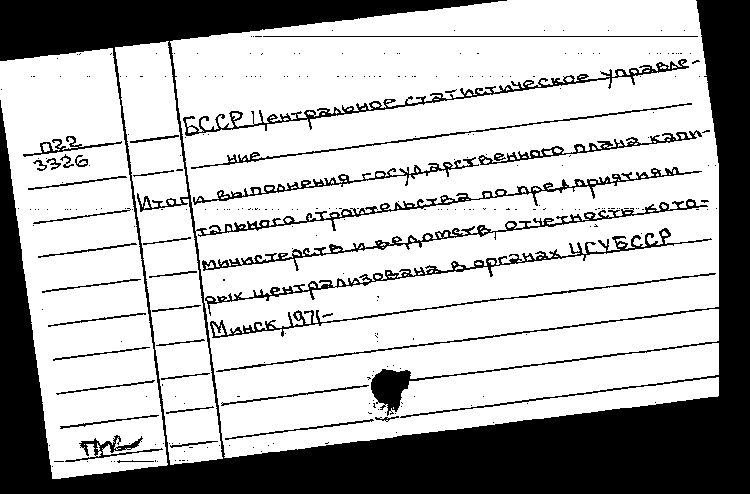 БССР Центральное статистическое управле-
п22
3326
ние.
Итоги выполнения государственного плана капи-
тального строительства по предприятиям
министерств и ведомств, отчетность кото-
рых централизована в органах ЦСУ БССР
Минск, 1971-